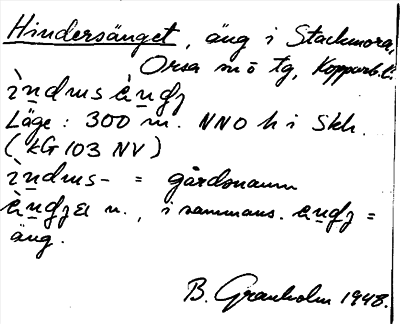 Hindersänget, äng i Stackmora,
Orsa sn ö tg, Kopparb. l.
Läge: 300 m. NNO h i Skh.
(KG 103 NV)
= gårdsnamn
n., i sammans. =
äng.
B. Granholm 1948.